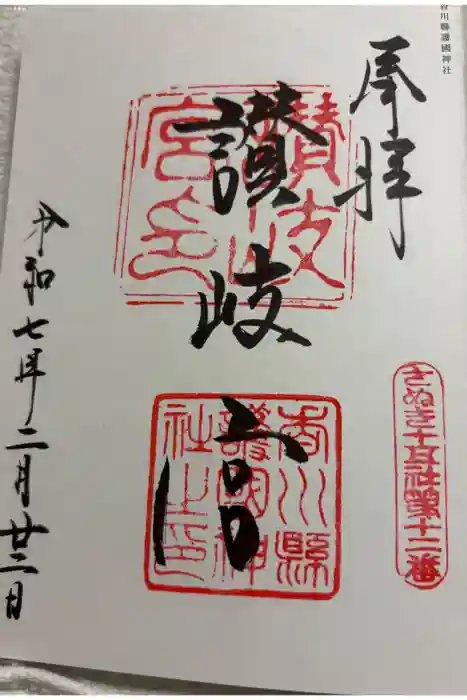 香川縣護國神社
奉拝
さぬき十五社第十二番
讃岐宮
讃岐宮印
香川縣護國神社之印
令和七年二月廿三日